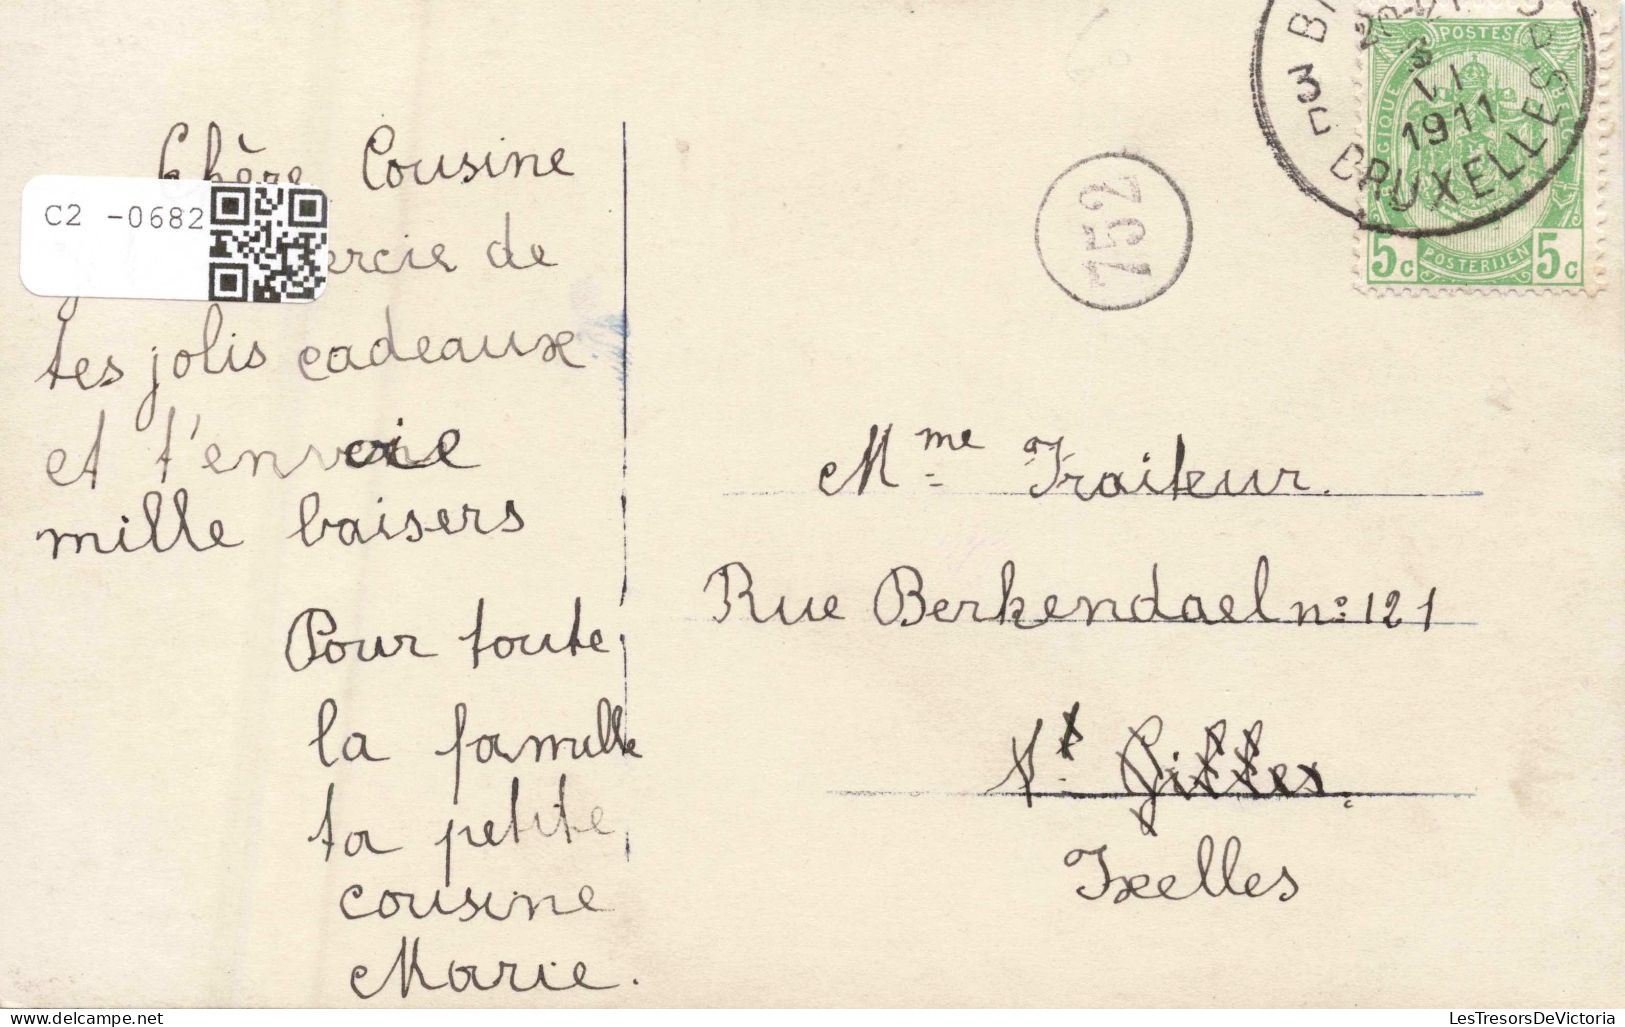 Chère Cousine
C2 -0682
ercie de
tes jolis cadeaux
et t'envoie
mille baisers
Pour toute
la famille
ta petite
cousine
Marie.
752
POSTES
5c POSTERIJEN 5c
3 VI
1911
BRUXELLES
Mme Traiteur.
Rue Berkendael no: 121
St Gilles.
Ixelles
delcampe.net
LesTresorsDeVictoria